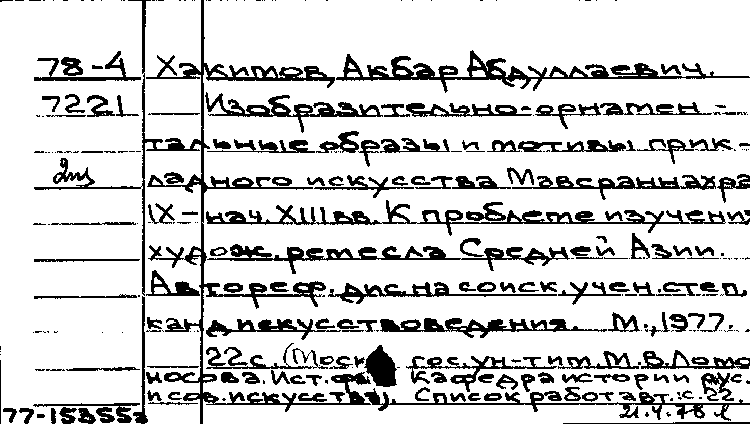 78-4 Хакимов, Акбар Абдуллаевич.
7221 Изобразительно-орнамен-
тальные образы и мотивы прик-
ладного искусства Мавераннахра
IX – нач. XIII вв. К проблеме изучения
худож. ремесла Средней Азии.
Автореф. дис. на соиск. учен. степ.
канд. искусствоведения. М., 1977.
22 с. (Моск. гос. ун-т им. М.В. Ломо-
носова. Ист. фак. Кафедра истории рус.
и сов. искусства). Список работ авт.: с. 22.
77-15355а 21.4.78